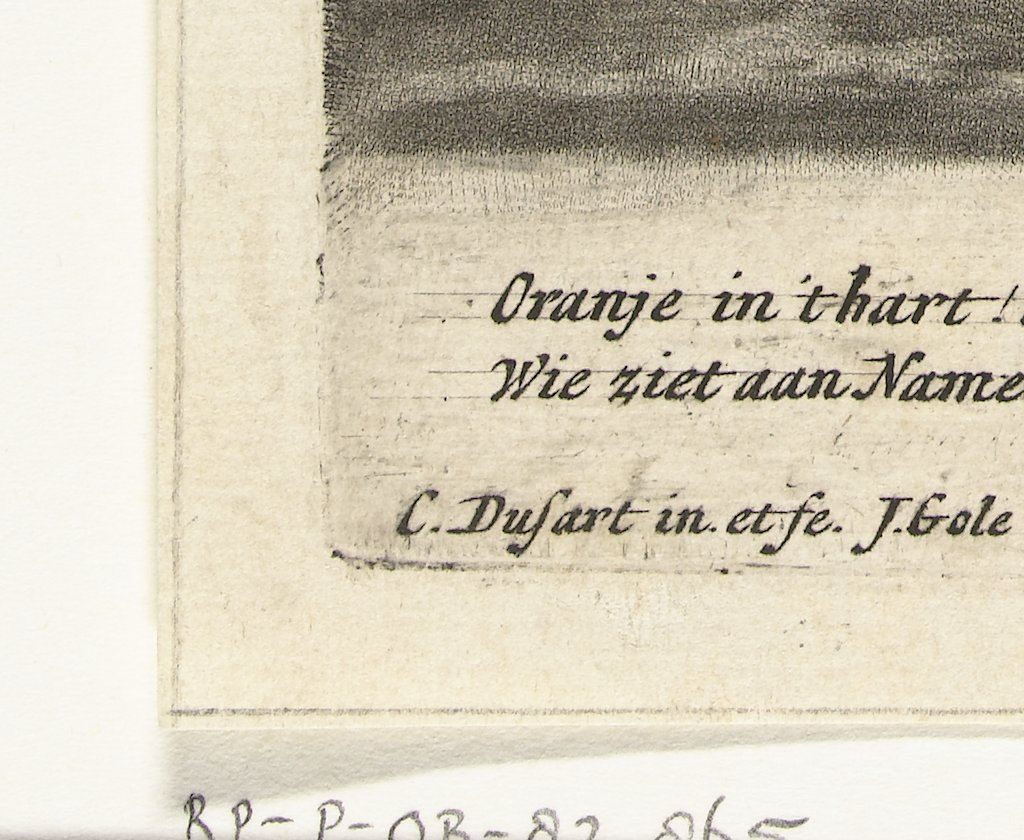 Oranje in 't hart!
Wie ziet aan Name
C. Duſart in. et fe. J. Gole
RP-P-OB-82.865